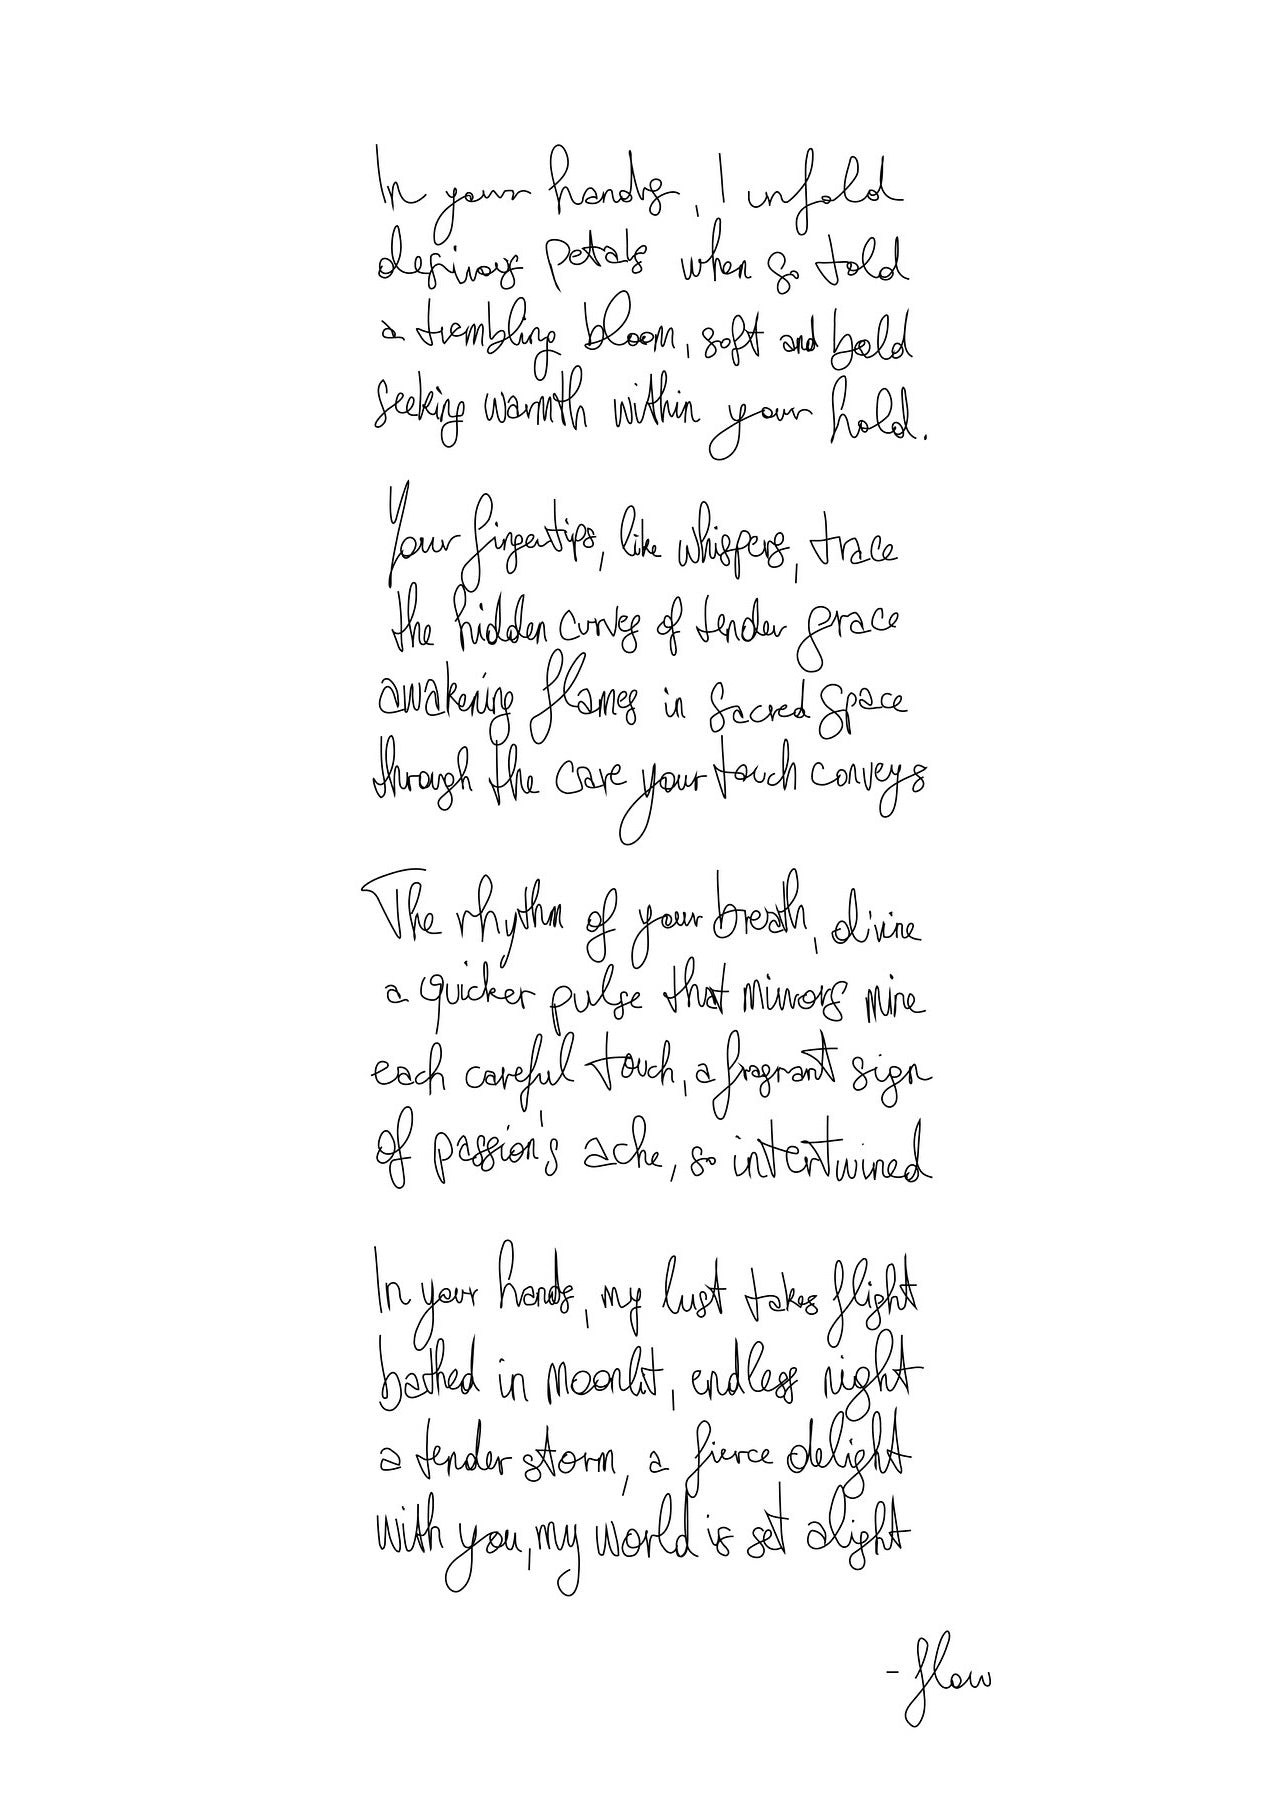 In your hands, I unfold
desirous petals when so told
a trembling bloom, soft and bold
seeking warmth within your hold.
Your fingertips, like whispers, trace
the hidden curves of tender grace
awakening flames in sacred space
through the care your touch conveys
The rhythm of your breath, divine
a quicker pulse that mirrors mine
each careful touch, a fragrant sign
of passion's ache, so intertwined
In your hands, my lust takes flight
bathed in moonlit, endless night
a tender storm, a fierce delight
with you, my world is set alight
- flow